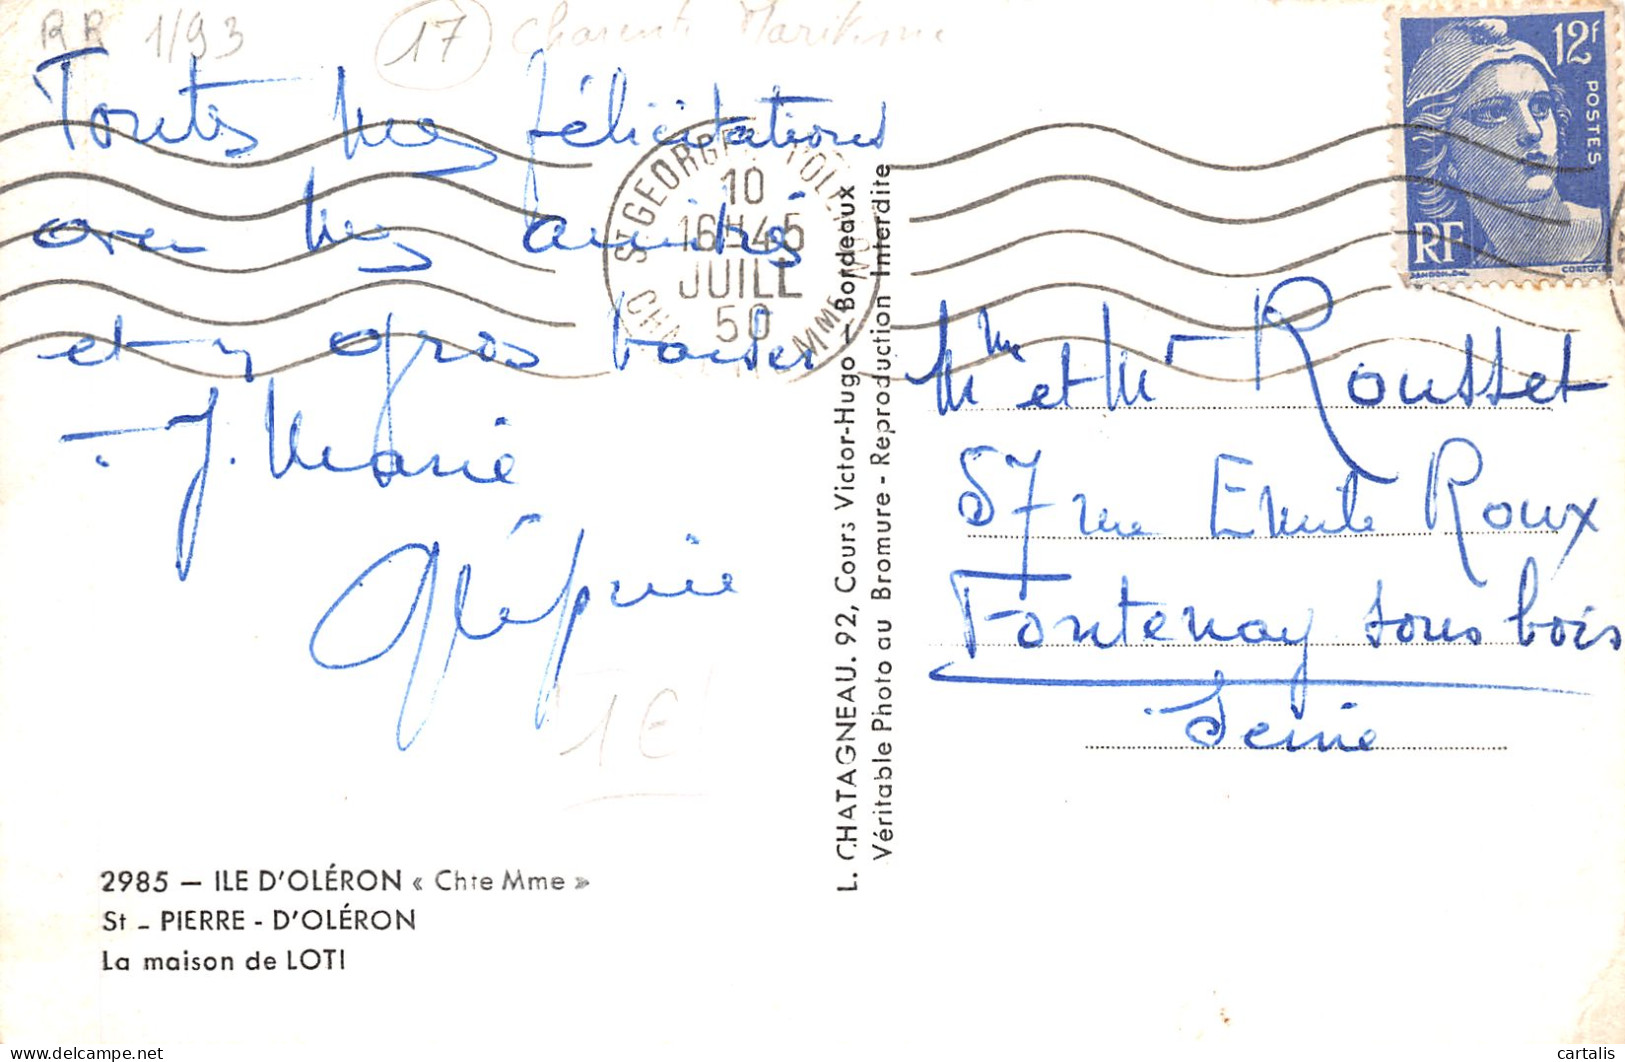 RR 1/93
17 Charente Maritime
Toutes mes félicitations
avec mes amitiés
et gros baisers
J. Marie
2985 – ILE D'OLÉRON « Chte Mme »
St - PIERRE - D'OLÉRON
La maison de LOTI
1€
L. CHATAGNEAU. 92, Cours Victor-Hugo – Bordeaux
Véritable Photo au Bromure - Reproduction Interdite
ST GEORGES
10
16H45
JUILL
50
12F
POSTES
RF
GANDON.DEL.
Mme et Mr Rousset
57 rue Emile Roux
Fontenay sous bois
Seine
cartalis